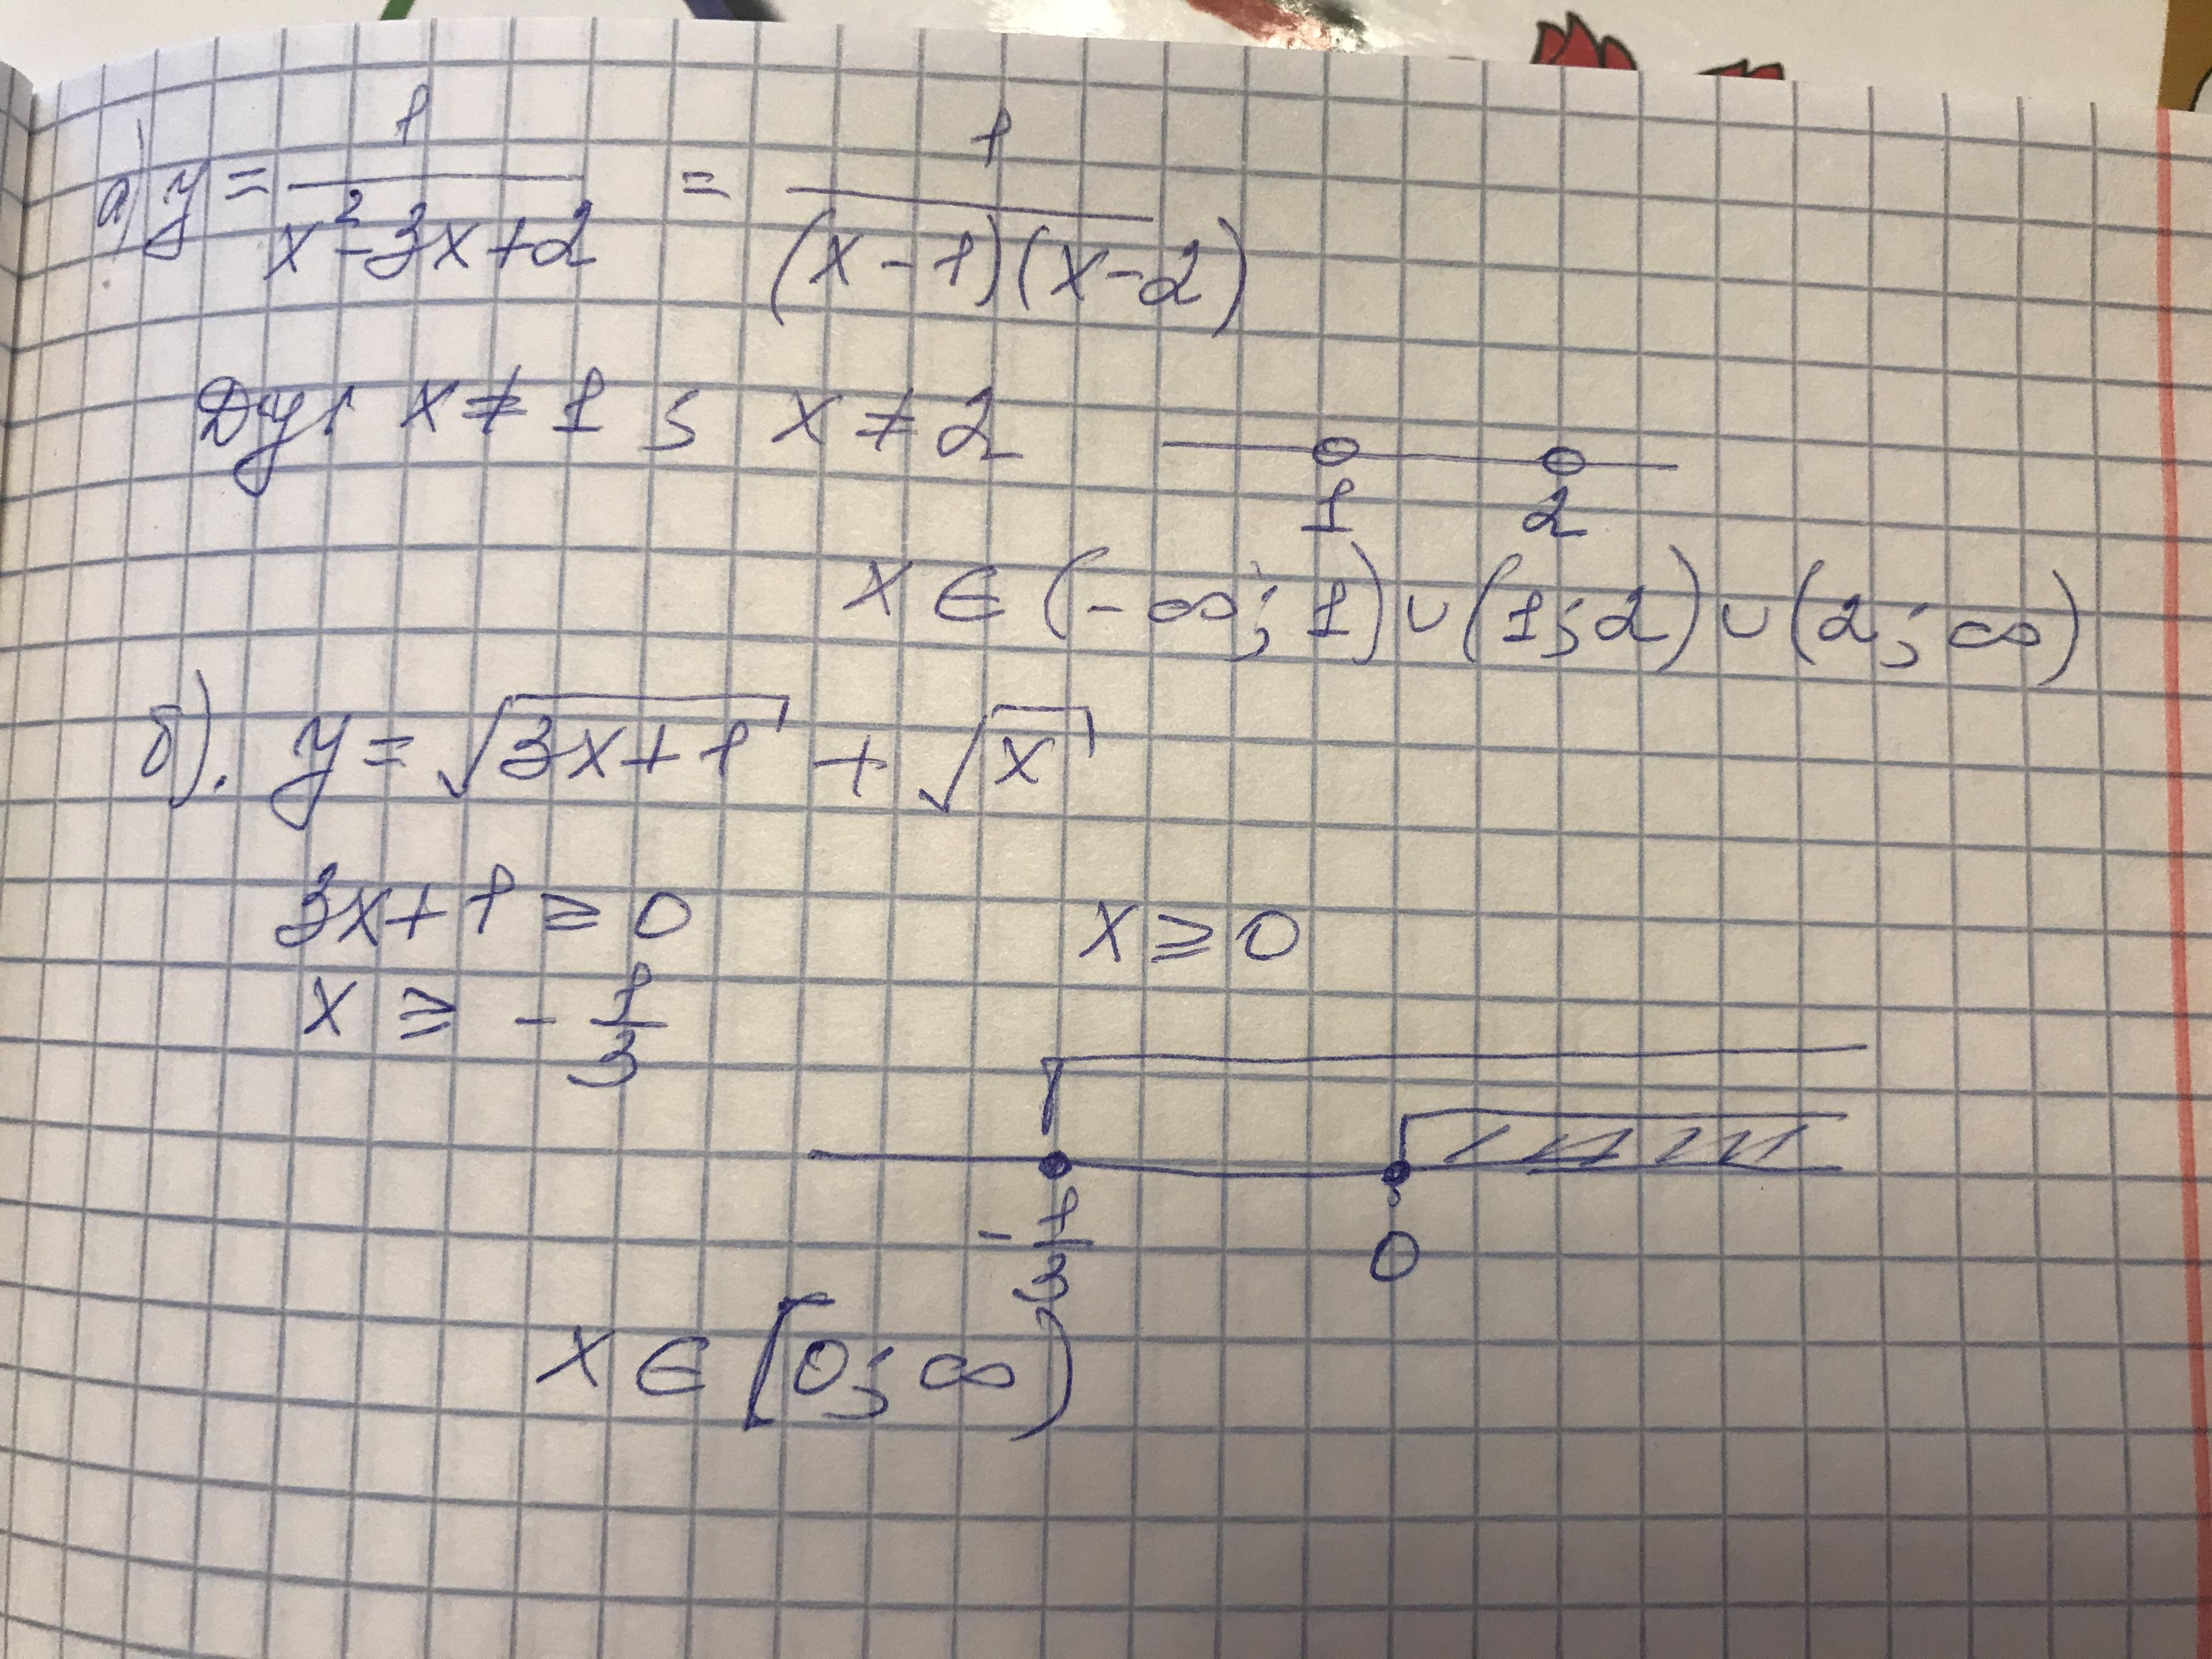 а) y = 1/(x² - 3x + 2) = 1/((x - 1)(x - 2))
Dy: x ≠ 1 ; x ≠ 2
1 2
x ∈ (-∞; 1) ∪ (1; 2) ∪ (2; ∞)
б). y = √(3x + 1) + √x
3x + 1 ≥ 0 x ≥ 0
x ≥ - 1/3
- 1/3 0
x ∈ [0; ∞)